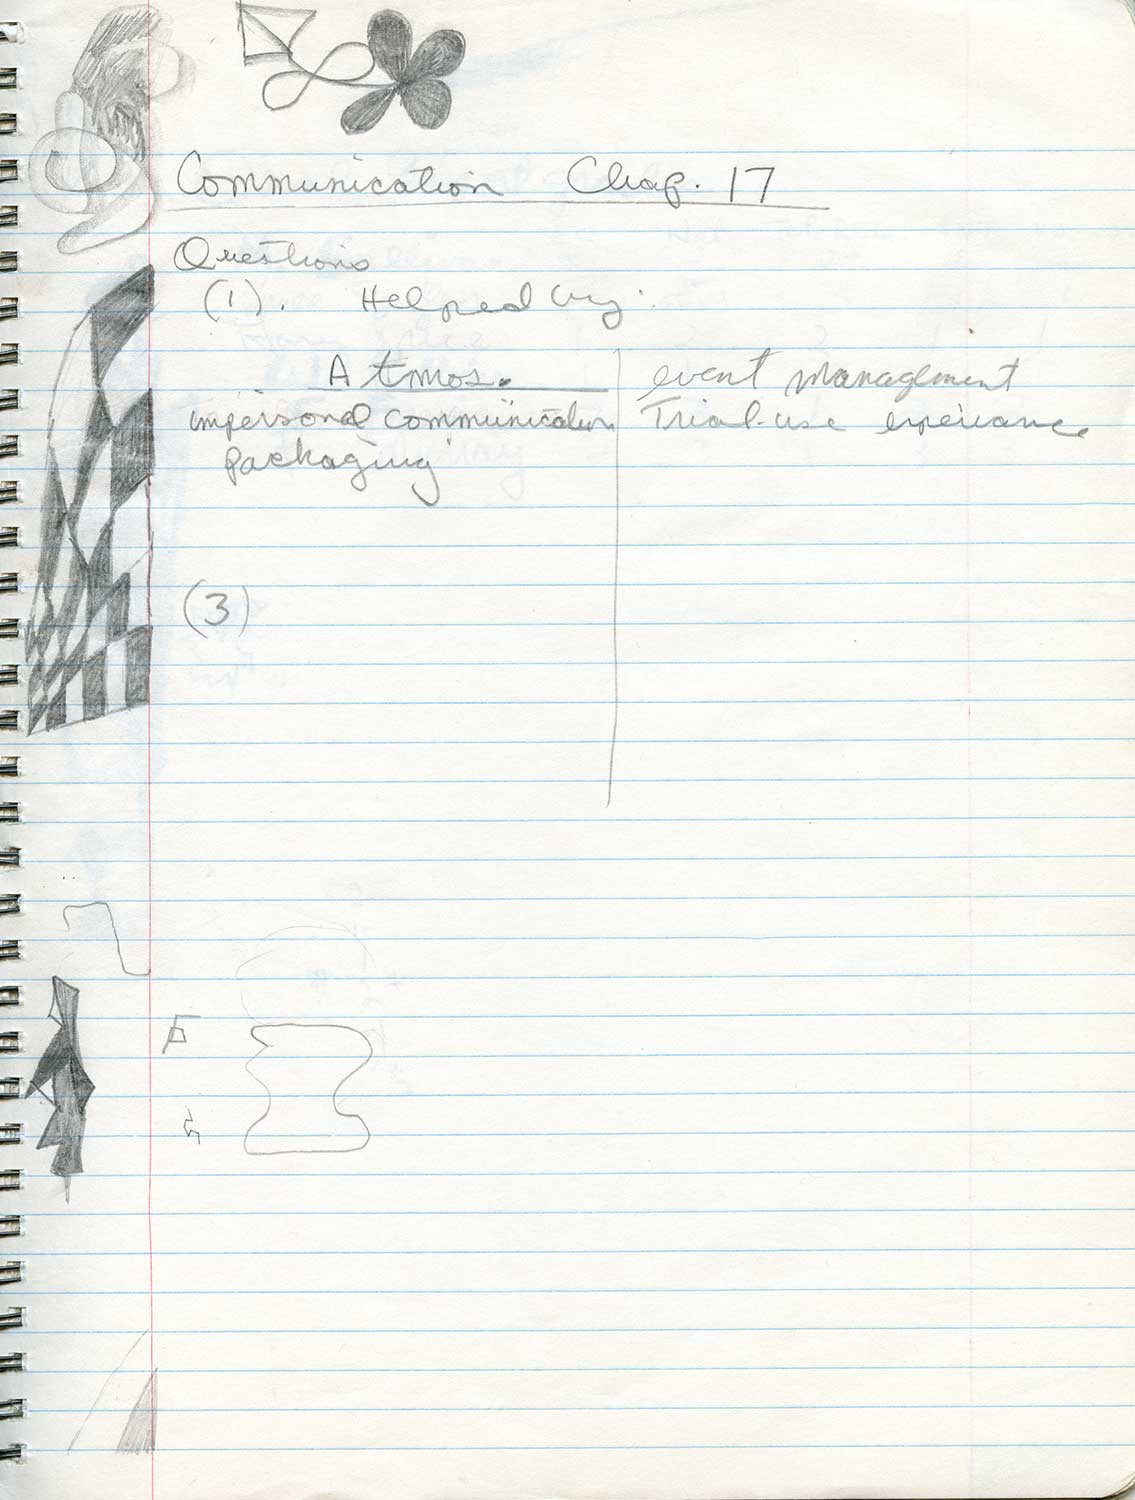 Communication Chap. 17
Questions
(1). Helped by:
Atmos. event management
impersonal communication Trial-use experiance
packaging
(3)